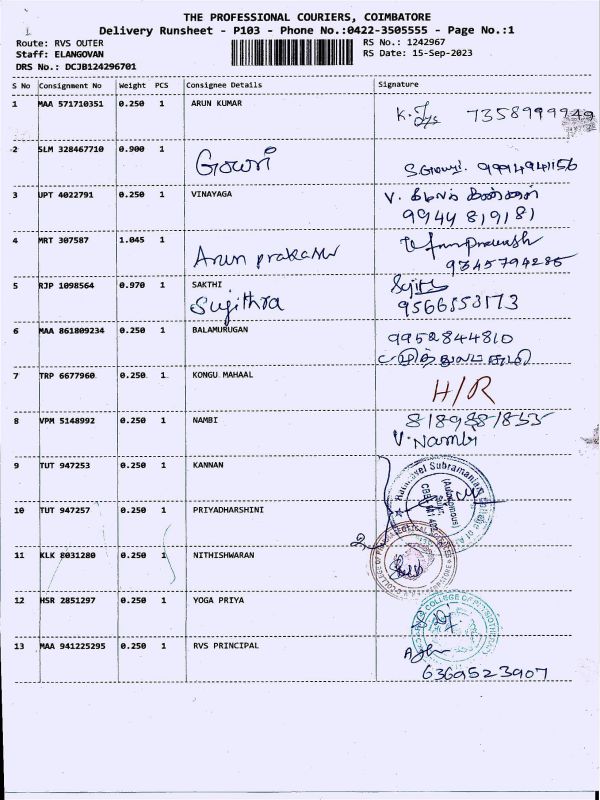 THE PROFESSIONAL COURIERS, COIMBATORE
Delivery Runsheet - P103 - Phone No.:0422-3505555 - Page No.:1
Route: RVS OUTER RS No.: 1242967
Staff: ELANGOVAN RS Date: 15-Sep-2023
DRS No.: DCJB124296701
S No Consignment No Weight PCS Consignee Details Signature
1 MAA 571710351 0.250 1 ARUN KUMAR
7358999949
2 SLM 328467710 0.900 1
Gowri S.Gowri.
3 UPT 4022791 0.250 1 VINAYAGA V.
9944 819181
4 MRT 307587 1.045 1
Arun prakash
9345794285
5 RJP 1098564 0.970 1 SAKTHI
Sujithra 9566553173
6 MAA 861809234 0.250 1 BALAMURUGAN 9952844810
7 TRP 6677960 0.250 1 KONGU MAHAAL
H/R
8 VPM 5148992 0.250 1 NAMBI
V.Nambi
9 TUT 947253 0.250 1 KANNAN
10 TUT 947257 0.250 1 PRIYADHARSHINI
11 KLK 8031280 0.250 1 NITHISHWARAN
12 HSR 2851297 0.250 1 YOGA PRIYA
COLLEGE OF PHYSIOTHERAPY
13 MAA 941225295 0.250 1 RVS PRINCIPAL
6369523907